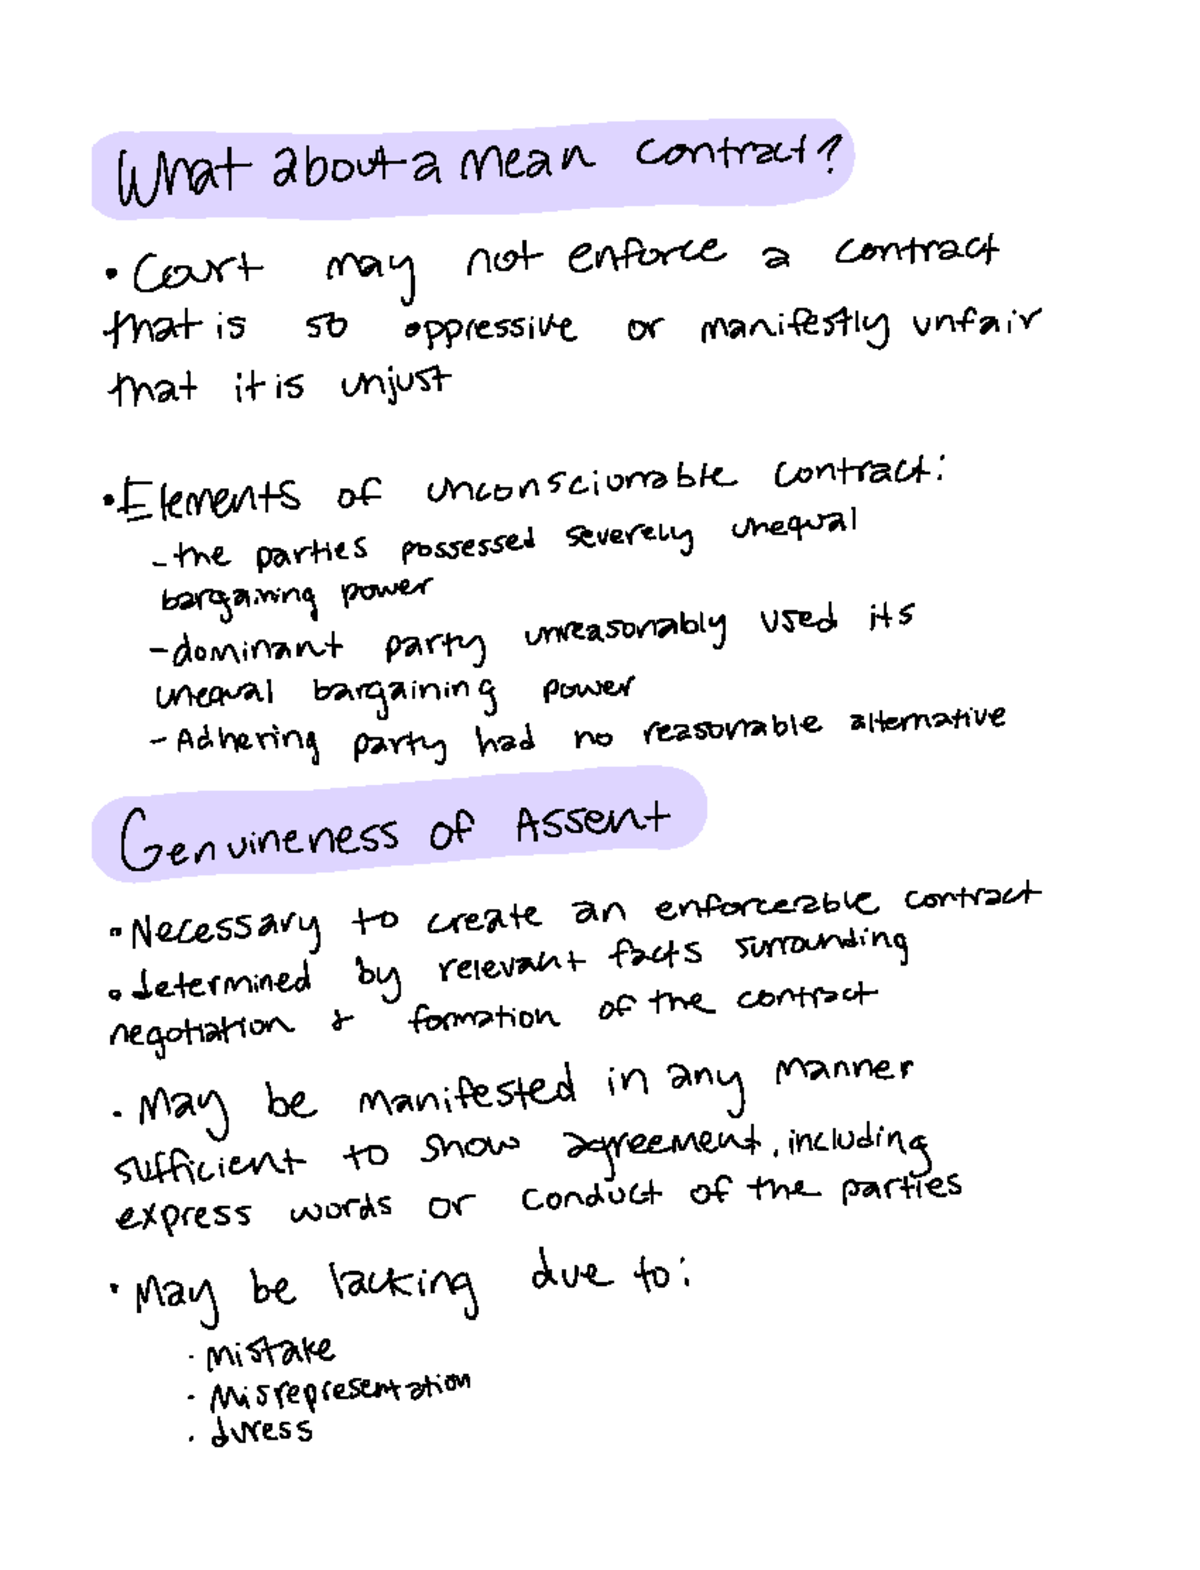 What about a mean contract?
• Court may not enforce a contract
that is so oppressive or manifestly unfair
that it is unjust
• Elements of unconscionable contract:
- the parties possessed severely unequal
bargaining power
- dominant party unreasonably used its
unequal bargaining power
- Adhering party had no reasonable alternative
Genuineness of Assent
• Necessary to create an enforceable contract
• determined by relevant facts surrounding
negotiation & formation of the contract
• May be manifested in any manner
sufficient to show agreement, including
express words or conduct of the parties
• May be lacking due to:
• mistake
• Misrepresentation
• duress